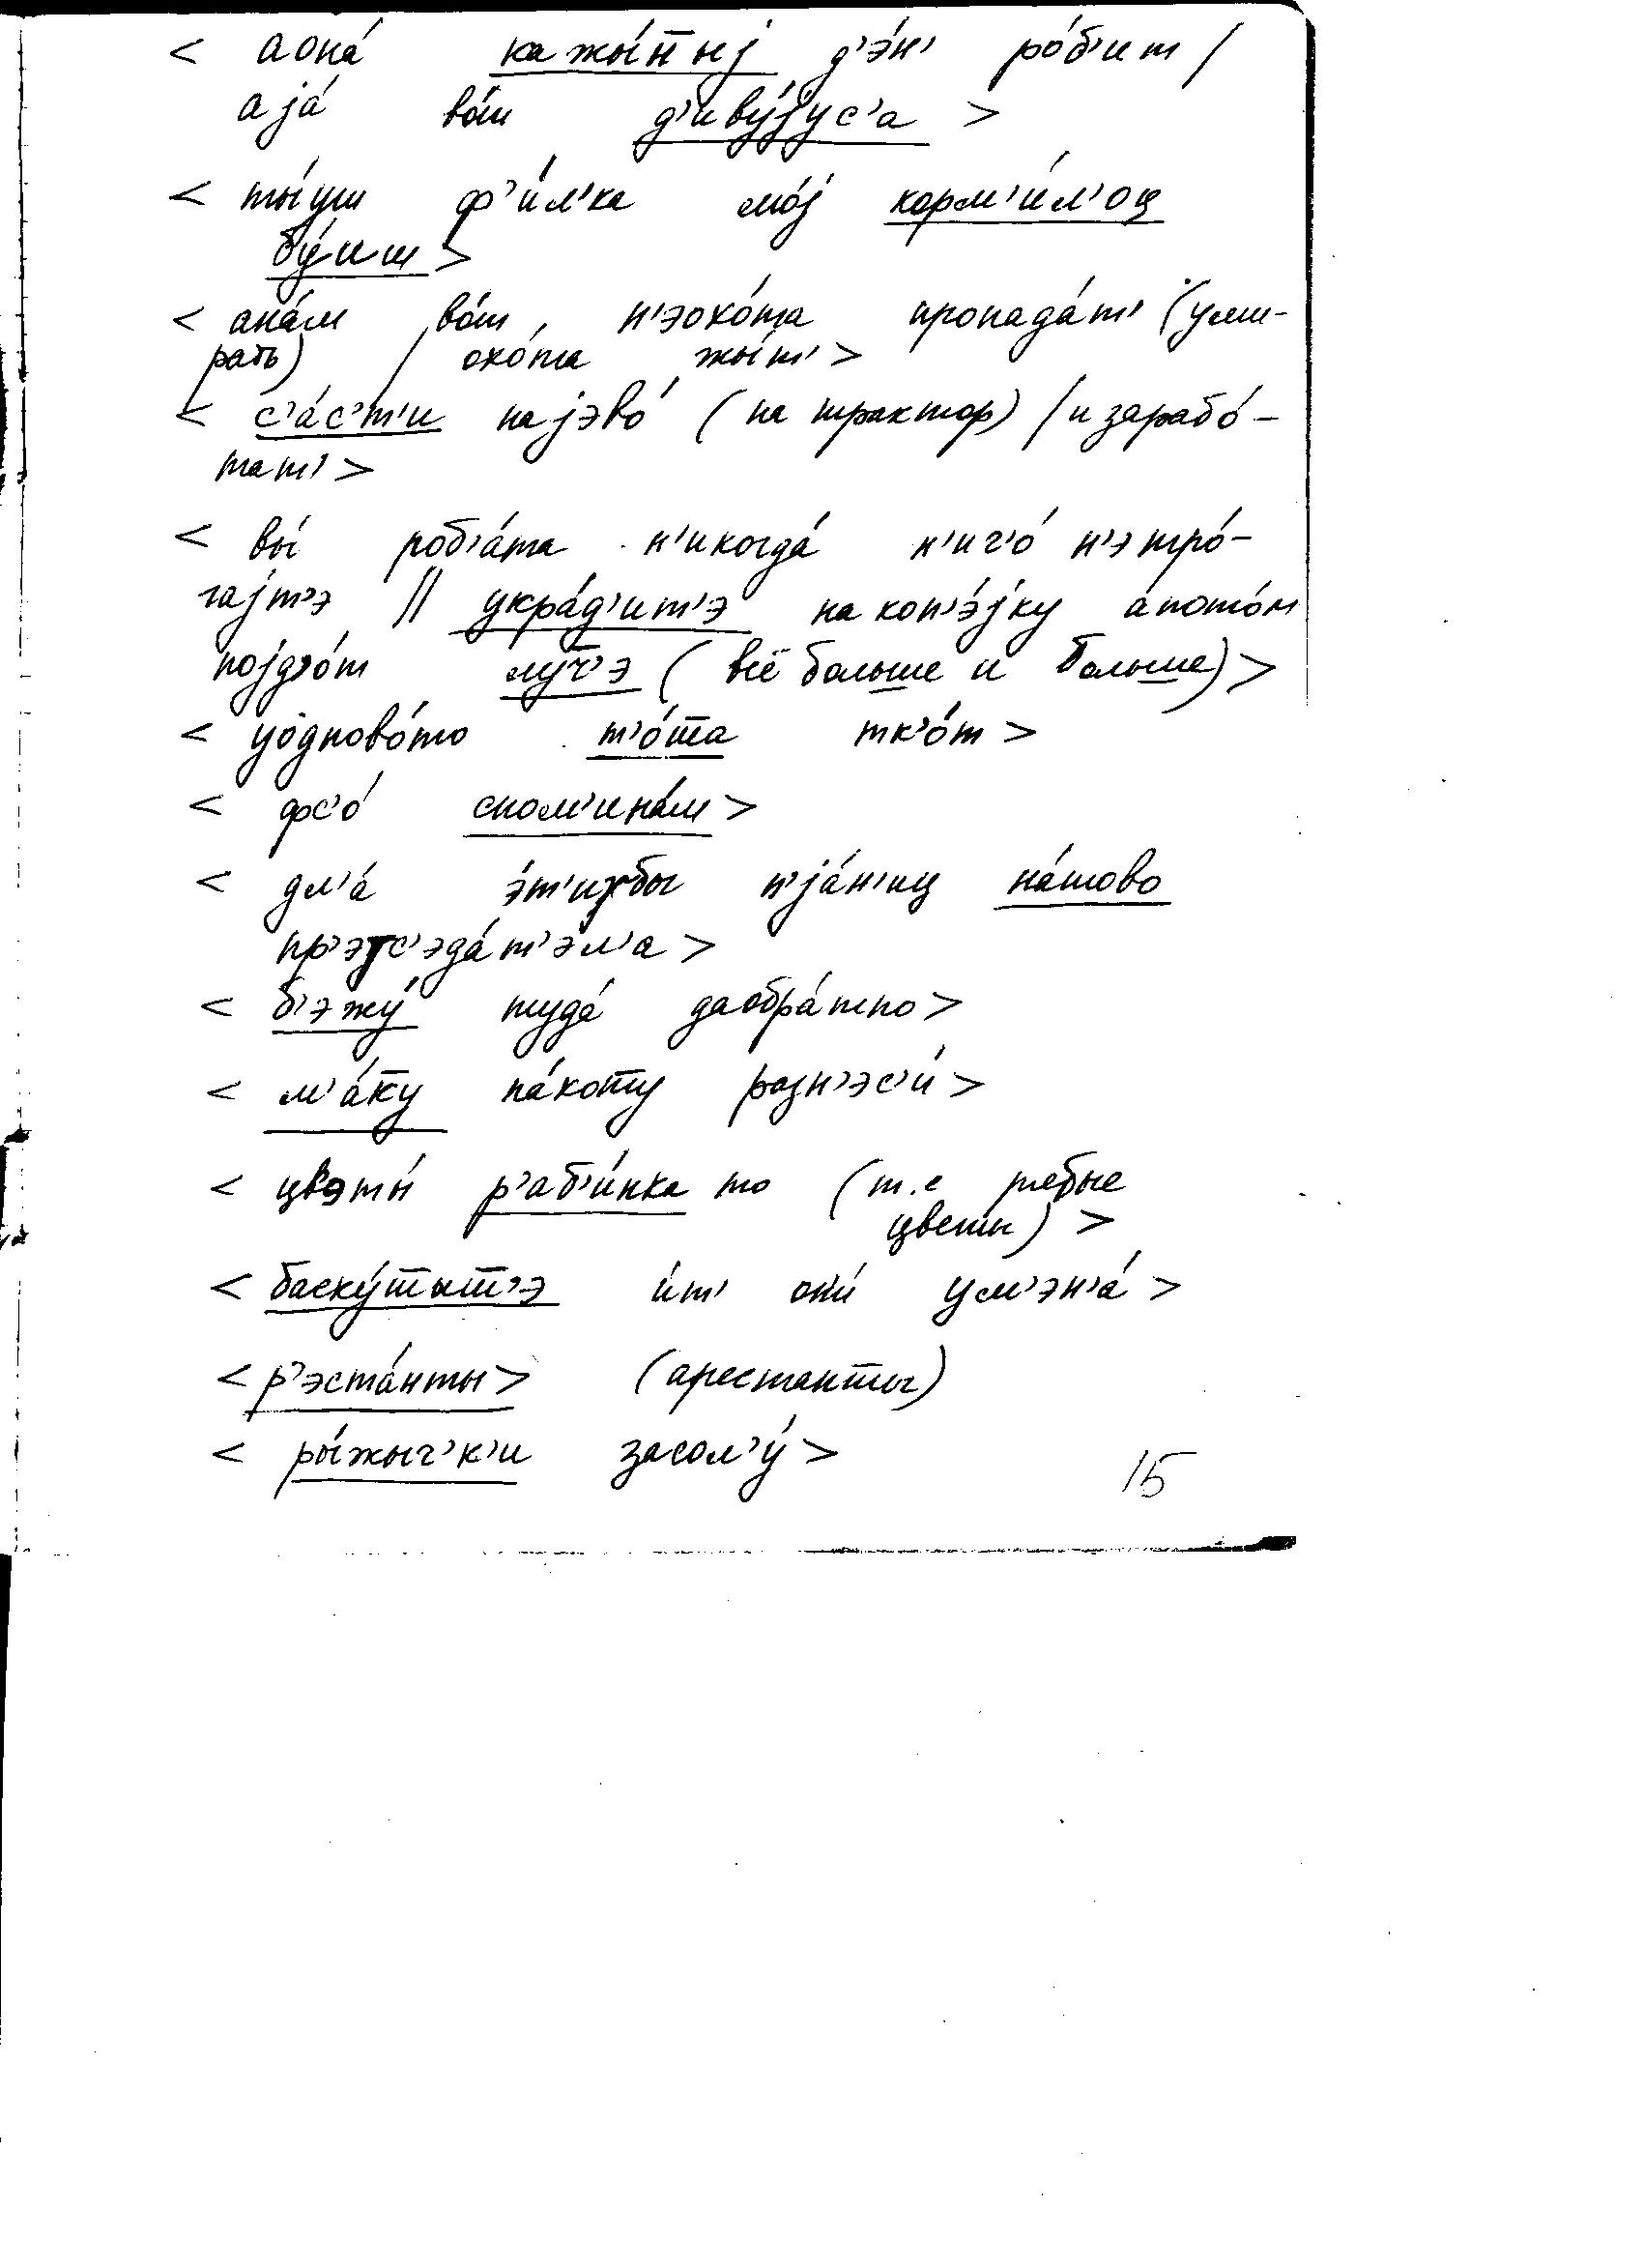 < аона́ кажы́н̄ыj д’э́н’ ро́б’ит /
аjа́ во́т д’иву́jус’а >
< ты́уш ф’и́л’ка мо́j корм’и́л’оц
бу́иш >
< ана́м во́т, н’эохо́та пропада́т’ (уми-
рать) / охо́та жы́т’ >
< с’а́с’т’и наjэво́ (на трактор) / и зарабо́-
тат’ >
< вы́ роб’а́та н’икогда́ н’ич’о́ н’этро́-
гаjт’э // укра́д’ит’э на коп’э́jку а́пото́м
поjд’о́т лу́ч̄’э (всё больше и больше) >
< уодново́то т’о́т̄а тк’о́т >
< фс’о́ спом’ина́м >
< дл’а́ э́т’ихбы п’jа́н’иц на́тово
пр’этс’эда́т’эл’а >
< б’эжу́ туда́ даобра́тно >
< м’а́к̄у па́кот̄у розн’эс’и́ >
< цвэты́ р’аб’и́нка то (т.е рябые
цветы) >
< баску́т̄ыт̄’э и́т’ он’и́ ум’эн’а́ >
< р’эста́нты > (арестанты)
< ры́жыч’к’и засол’у́ >
15